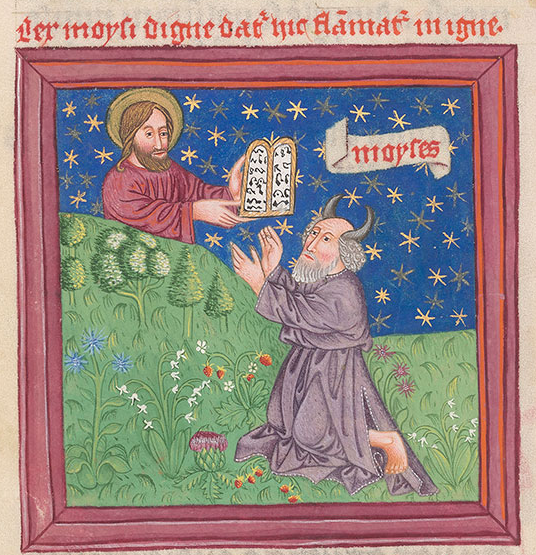 Lex moysi digne datʳ hic flāmatʳ in igne.
moyses